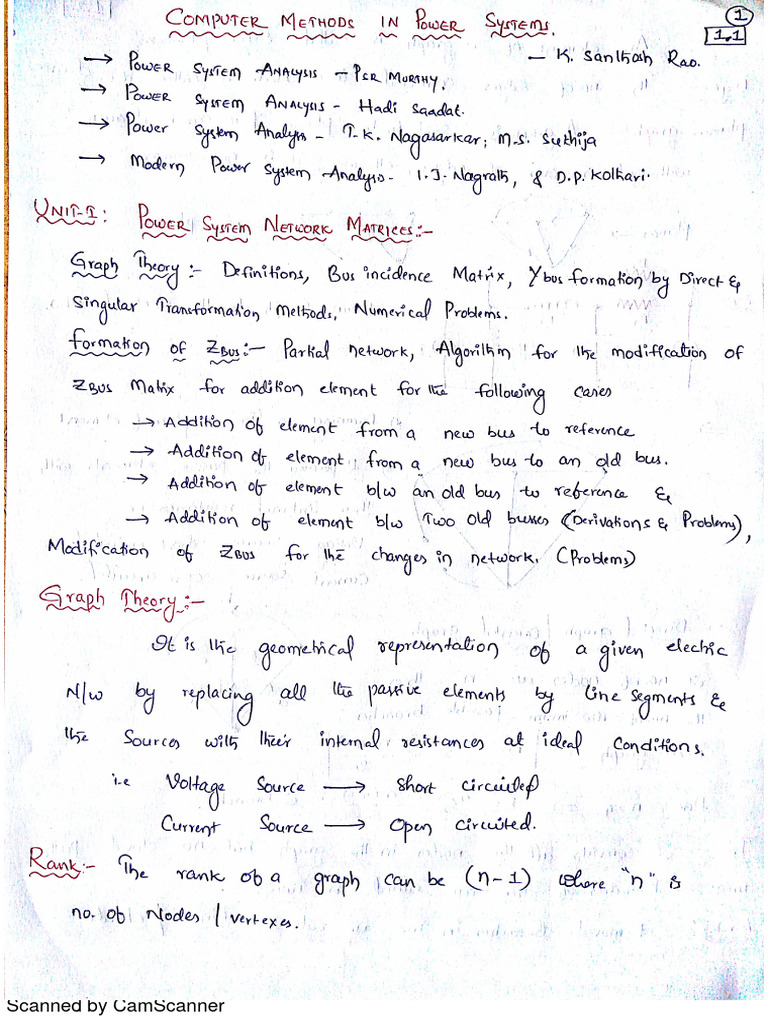 COMPUTER METHODS IN POWER SYSTEMS.
1
1.1
– K. Santhosh Rao.
→ Power System Analysis – PSR Murthy.
→ Power System Analysis – Hadi Saadat.
→ Power System Analysis – T.K. Nagasarkar; M.S. Sukhija
→ Modern Power System Analysis – I.J. Nagrath, & D.P. Kothari.
UNIT-I: POWER SYSTEM NETWORK MATRICES:–
Graph Theory:– Definitions, Bus incidence Matrix, Ybus formation by Direct &
Singular Transformation Methods, Numerical Problems.
Formation of ZBUS:– Partial network, Algorithm for the modification of
ZBUS Matrix for addition element for the following cases
→ Addition of element from a new bus to reference
→ Addition of element from a new bus to an old bus.
→ Addition of element b/w an old bus to reference &
→ Addition of element b/w Two old busses (Derivations & Problems),
Modification of ZBUS for the changes in network. (Problems)
Graph Theory:–
It is the geometrical representation of a given electric
N/w by replacing all the passive elements by line segments &
the sources with their internal resistances at ideal conditions.
i.e Voltage Source → Short circuited
Current Source → Open circuited.
Rank:– The rank of a graph can be (n-1) where "n" is
no. of Nodes / vertexes.
Scanned by CamScanner